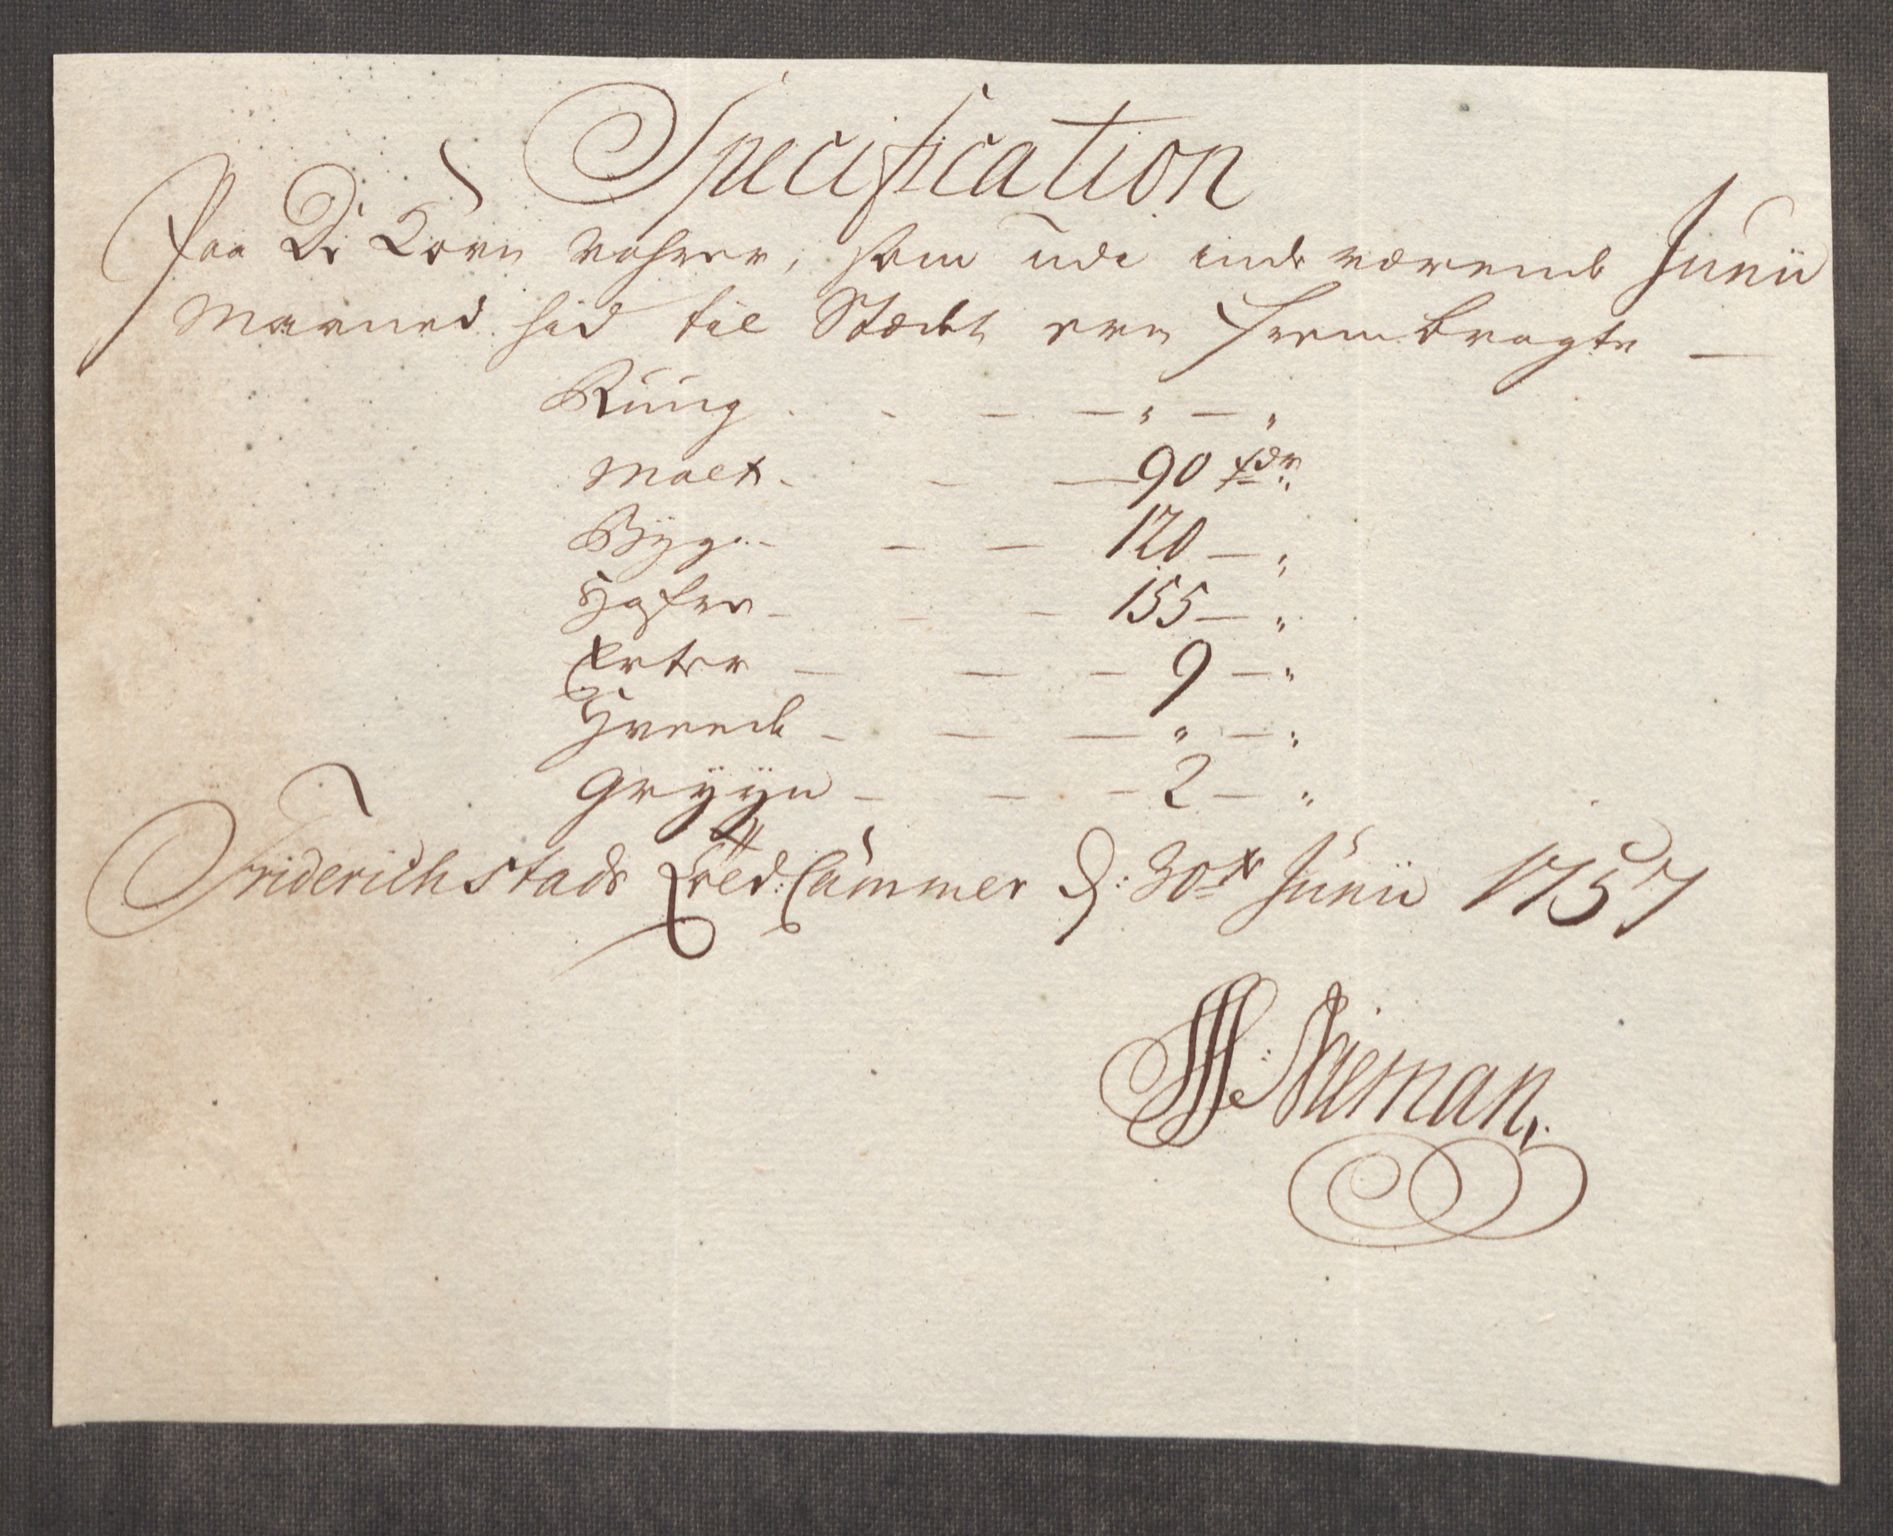 Specification
Paa De Korn Vahrer, som udi inde værende Junii
Maaned hid til Stædet ere frembragte —
Ruug . - — — " — "
Malt - - — 90 tdr
Byg - - — 120 — "
Hafre - - — 155 — "
Erter — — — 9 — "
Hveede - — — " — "
Gryyn - — — 2 — "
Friderichstads Told: Cammer d: 30te Junii 1757
Nieman,